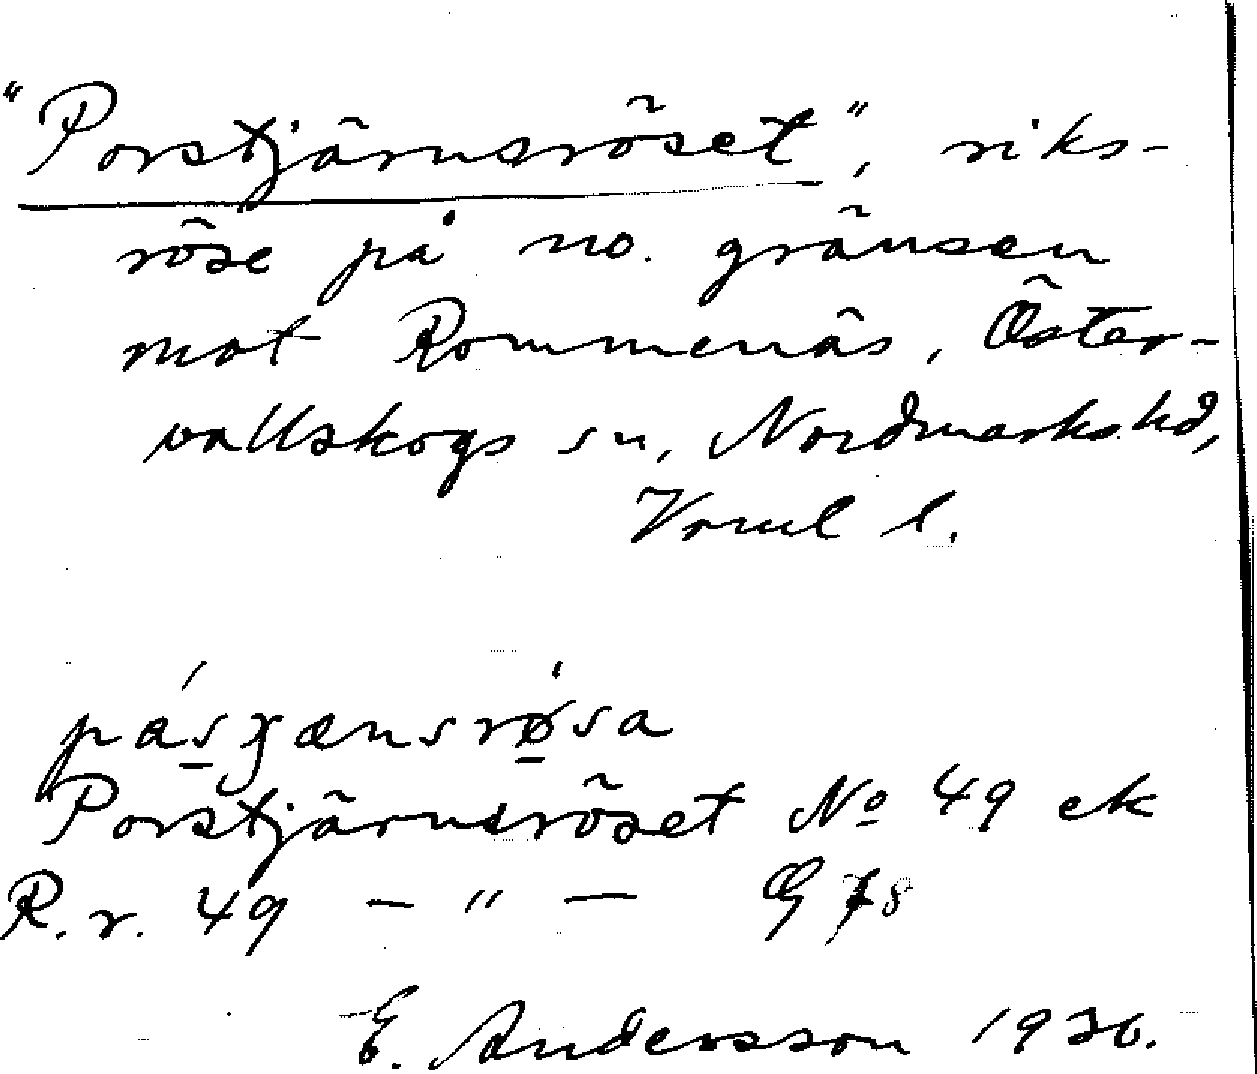 "Porstjärnsröset", riks-
röse på no. gränsen
mot Rommenäs, Öster-
vallskogs sn, Nordmarks hd,
Vrml l.
pásʒænsrǿ̱sa
Porstjärnsröset No 49 ek
R. r. 49 – " – G 78
E. Andersson 1930.